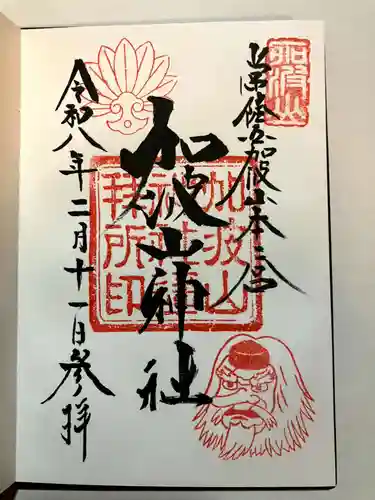 加波山
常陸国加波山本宮
加波山神社
加波山
神社
拝所印
令和八年二月十一日参拝